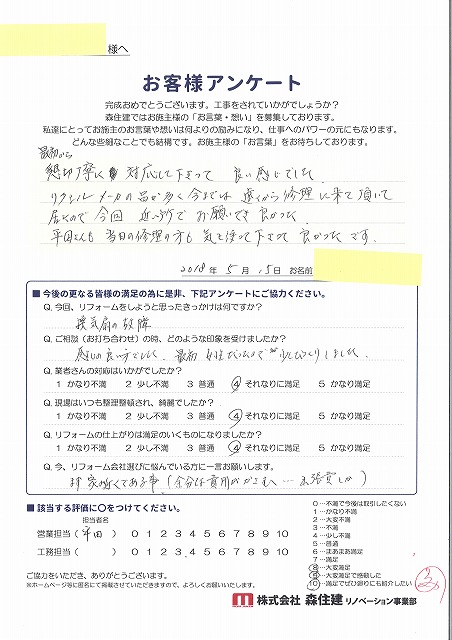 様へ
お客様アンケート
完成おめでとうございます。工事をされていかがでしょうか？
森住建ではお施主様の「お言葉・想い」を募集しております。
私達にとってお施主のお言葉や想いは何よりの励みになり、仕事へのパワーの元にもなります。
どんな些細なことでも結構です。お施主様の「お言葉」をお待ちしております。
最初から
対応して下さって 良い感じでした
リクシルメーカの品が多く今までは 遠くから修理に来て頂いて
居たので今回 近い所でお願いでき良かった。
平田さんも 当日の修理の方も 気を使って下さって 良かったです.
2018年 5月 15日 お名前
■ 今後の更なる皆様の満足の為に是非、下記アンケートにご協力ください。
Q. 今回、リフォームをしようと思ったきっかけは何ですか？
換気扇の故障
Q. ご相談（お打ち合わせ）の時、どのような印象を受けましたか？
感じの良い方でした. 最初 女性だったので 少しびっくりしました.
Q. 業者さんの対応はいかがでしたか？
1 かなり不満 2 少し不満 3 普通 4 それなりに満足 5 かなり満足
Q. 現場はいつも整理整頓され、綺麗でしたか？
1 かなり不満 2 少し不満 3 普通 4 それなりに満足 5 かなり満足
Q. リフォームの仕上がりは満足のいくものになりましたか？
1 かなり不満 2 少し不満 3 普通 4 それなりに満足 5 かなり満足
Q. 今、リフォーム会社選びに悩んでいる方に一言お願いします。
家の近くである事
■ 該当する評価に〇をつけてください。
担当者名
営業担当（平田） 0 1 2 3 4 5 6 7 8 9 10
工務担当（ ） 0 1 2 3 4 5 6 7 8 9 10
0…不満で今後は取引したくない
1…かなり不満
2…大変不満
3…不満
4…少し不満
5…普通
6…まあまあ満足
7…満足
8…大変満足
9…大変満足で感動した
10…満足でぜひ周りにも紹介したい
ご協力をいただき、ありがとうございます。
※ホームページ等に匿名にて掲載させていただきますので、よろしくお願いいたします。
株式会社 森住建 リノベーション事業部